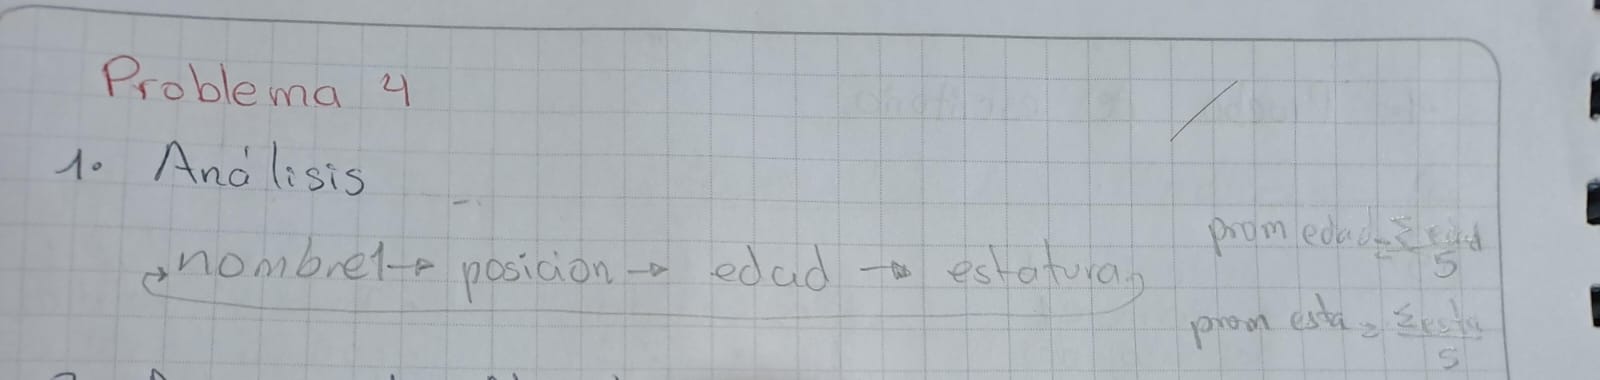 Problema 4
1. Análisis
nombre1 → posicion → edad → estatura
prom edad = Σ edad / 5
prom esta = Σ esta / 5